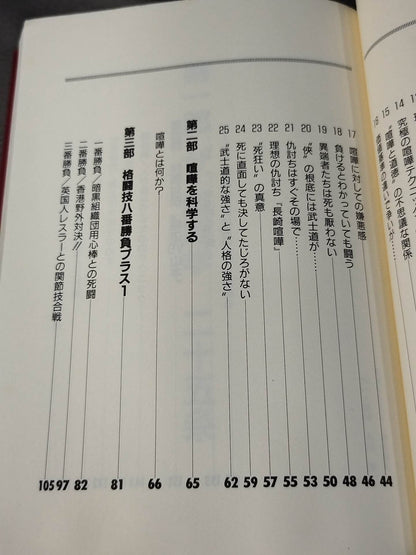 14 究極の喧嘩テクニッ
15 〝喧嘩と道徳〟の不思議な関係
17 喧嘩に対しての嫌悪感 44
18 負けるとわかっていても闘う 46
19 異端者たちは死も厭わない 48
20 〝侠〟の根底には武士道が…… 50
21 仇討ちはすぐその場で…… 53
22 理想の仇討ち「長崎喧嘩」 55
23 〝死狂い〟の真意 57
24 死に直面しても決してたじろがない 59
25 〝武士道的な強さ〟と〝人格の強さ〟 62
第二部 喧嘩を科学する 65
喧嘩とは何か? 66
第三部 格闘技八番勝負プラス1 81
一番勝負/暗黒組織団用心棒との死闘 82
二番勝負/香港野外対決!! 97
三番勝負/英国人レスラーとの関節技合戦 105